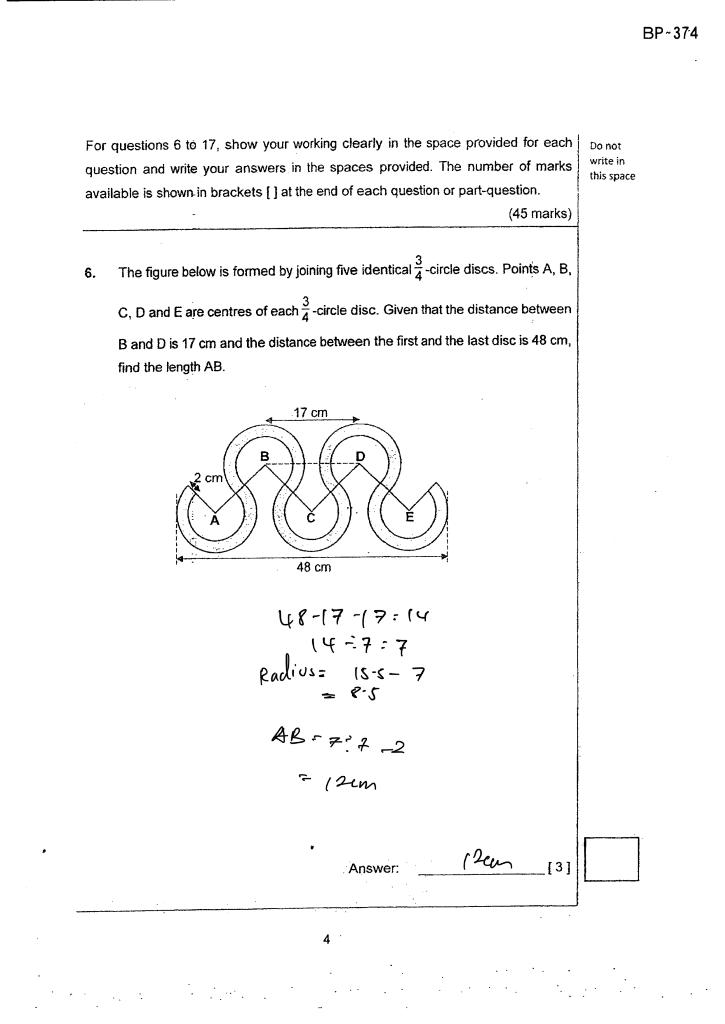 BP-374
For questions 6 to 17, show your working clearly in the space provided for each
question and write your answers in the spaces provided. The number of marks
available is shown in brackets [ ] at the end of each question or part-question.
(45 marks)
Do not
write in
this space
6. The figure below is formed by joining five identical 3/4-circle discs. Points A, B,
C, D and E are centres of each 3/4-circle disc. Given that the distance between
B and D is 17 cm and the distance between the first and the last disc is 48 cm,
find the length AB.
17 cm
B D
2 cm
A C E
48 cm
48-17-17=14
14÷7=7
Radius= 15.5-7
= 8.5
AB = 7 7 -2
= 12cm
Answer: 12cm [3]
4